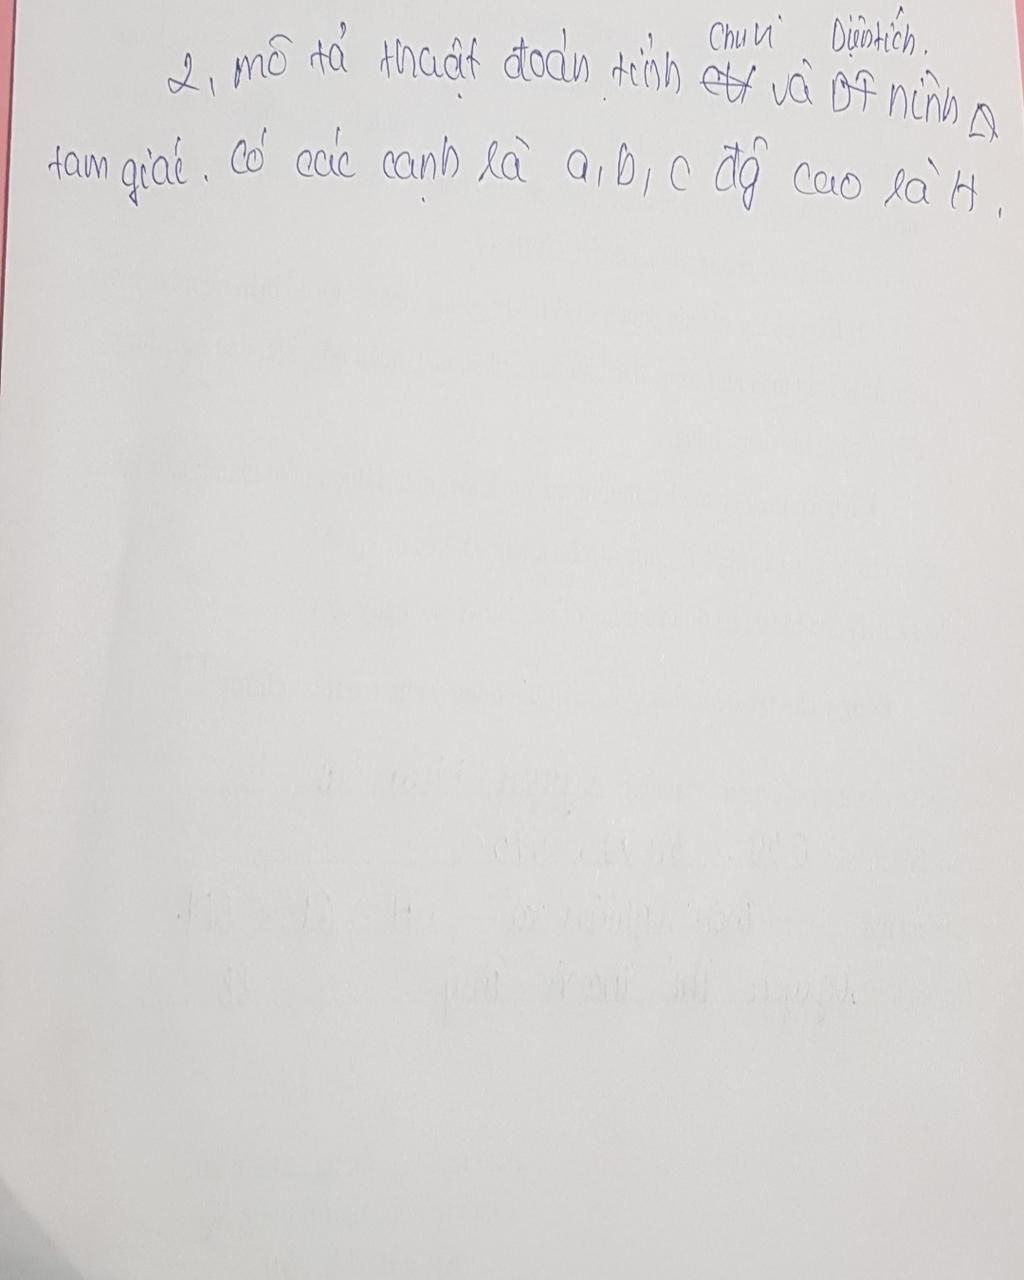 Chu vi Diện tích.
2, mô tả thuật đoán tính và DT hình Δ
tam giác. Có các cạnh là a, b, c độ cao là H.